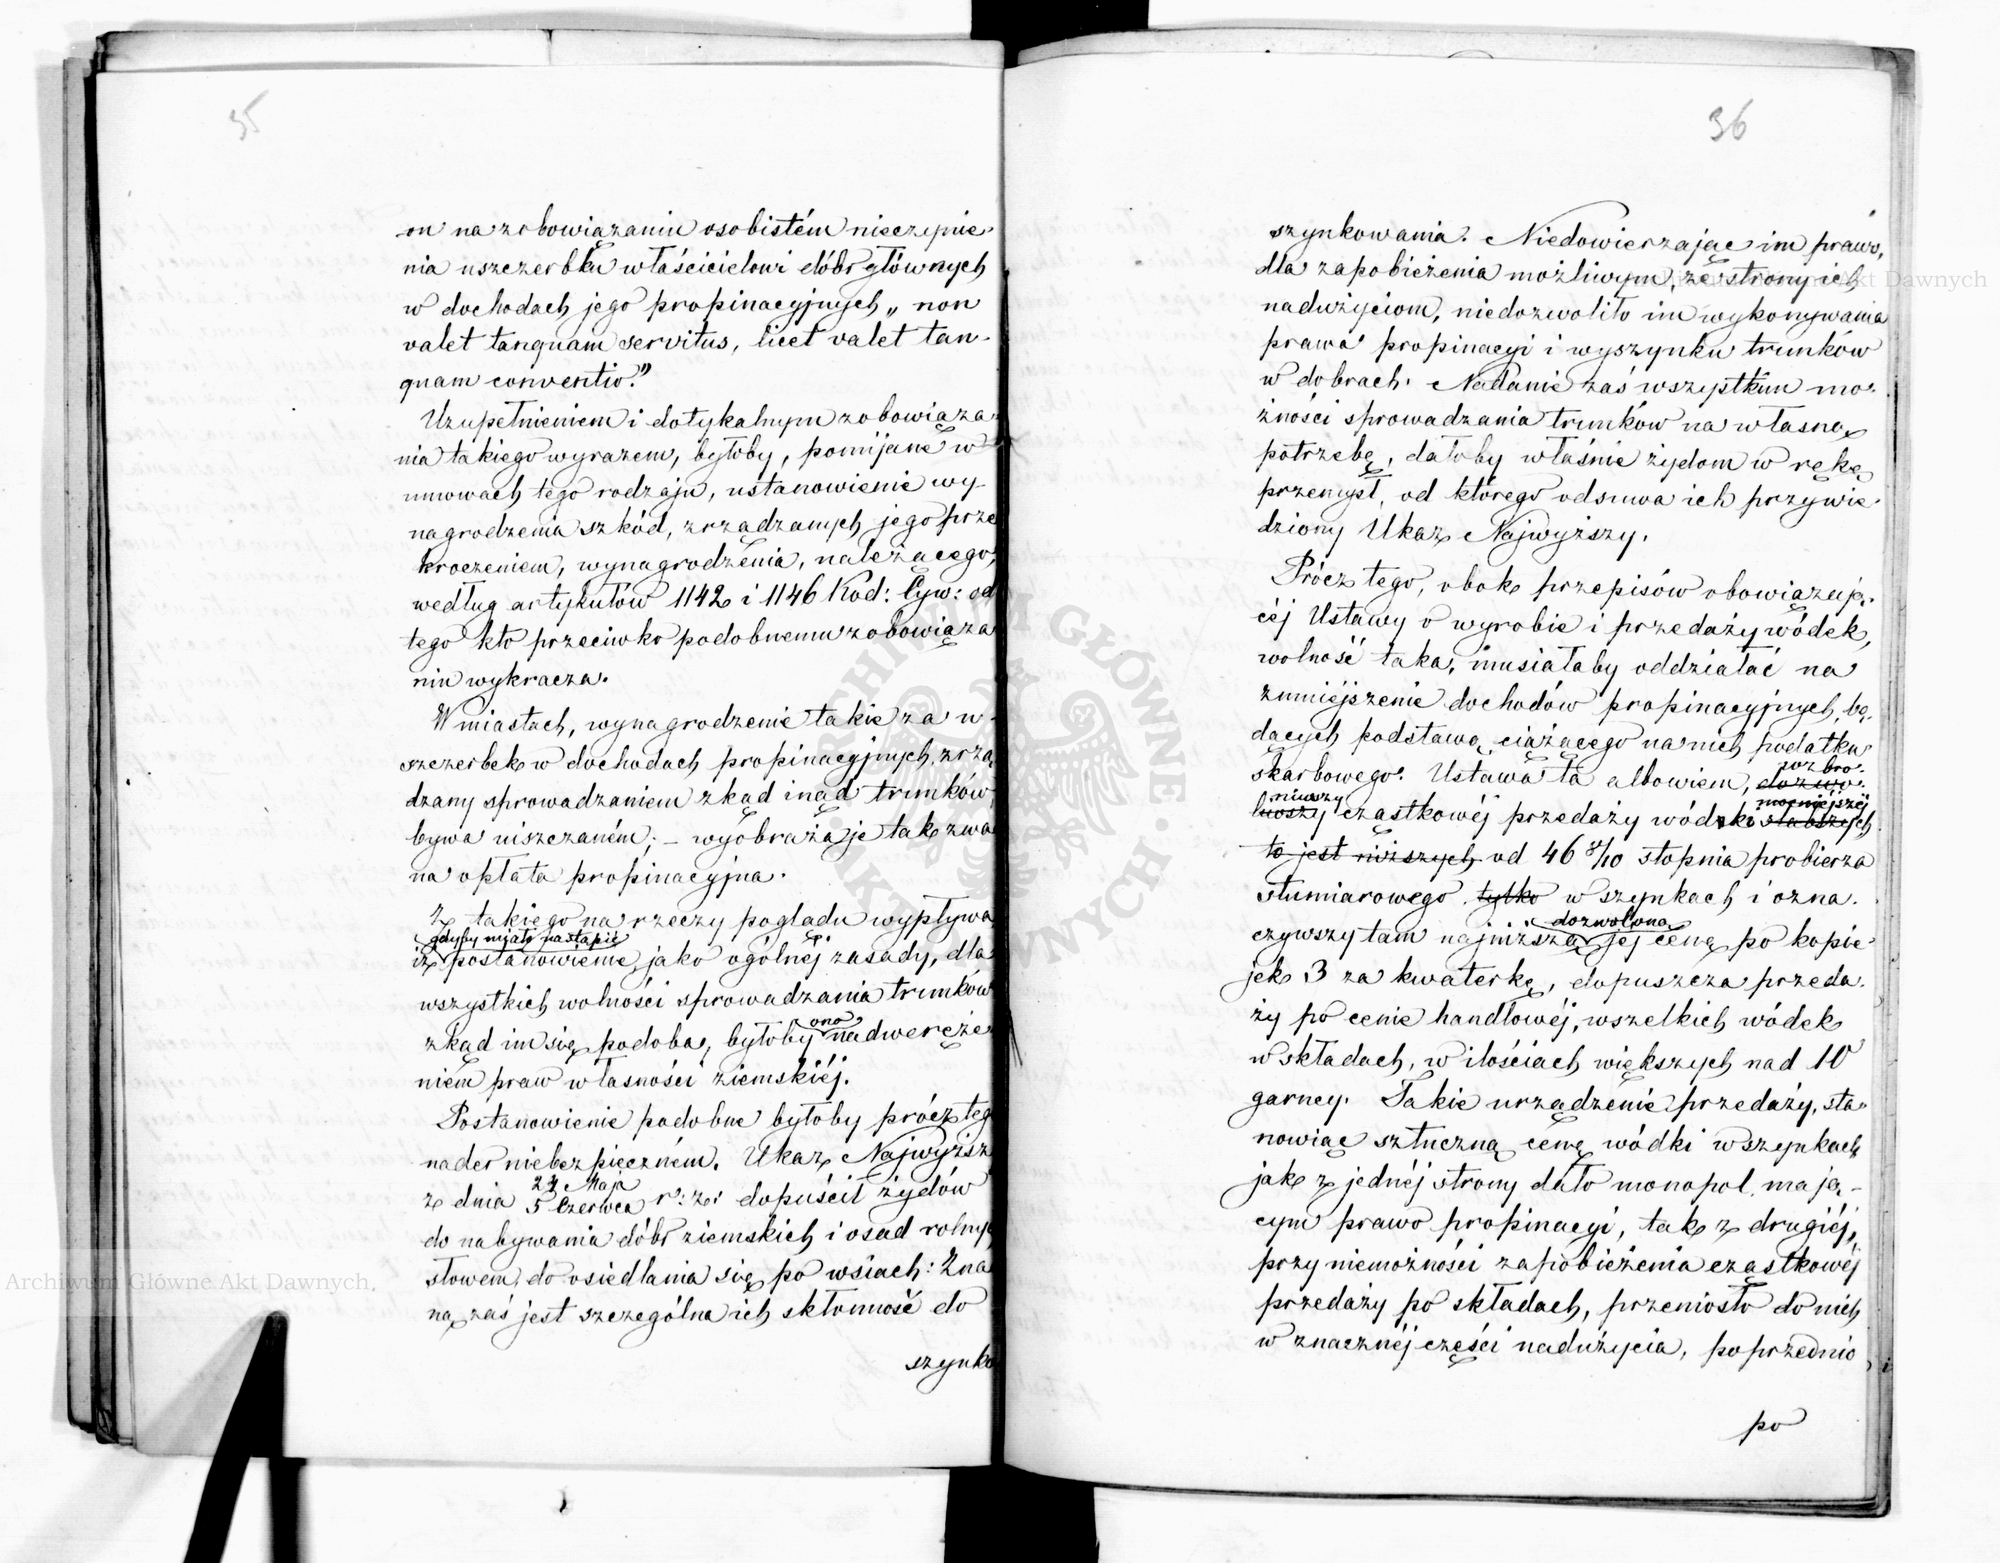 35
on na zobowiązaniu osobistém nieczynie-
nia uszczerbku właścicielowi dóbr głównych
w dochodach jego propinacyjnych „non
valet tanquam servitus, licet valet tan-
quam conventio."
Uzupełnieniem i dotykalnym zobowiąza-
nia takiego wyrazem, byłoby, pomijane w
umowach tego rodzaju, ustanowienie wy-
nagrodzenia szkód, zrządzanych jego prze
kroczeniem, wynagrodzenia, należącego,
według artykułów 1142 i 1146 Kod: Cyw: od
tego kto przeciwko podobnemu zobowiąza
niu wykracza.
W miastach, wynagrodzenie takie za u-
szczerbek w dochodach propinacyjnych, zrzą
dzany sprowadzaniem zkąd inąd trunków
bywa uiszczaném; – wyobraża je tak zwa
na opłata propinacyjna.
Z takiego na rzeczy poglądu wypływa
gdyby miało nastąpić
iż postanowienie, jako ogólnéj zasady, dla
wszystkich wolności sprowadzania trunków
ono
zkąd im się podoba, byłoby nadweręże
niem praw własności ziemskiéj.
Postanowienie podobne byłoby prócz teg
nader niebezpieczném. Ukaz Najwyższ
24 Maja
z dnia 5 Czerwca r: z: dopuścił żydów
do nabywania dóbr ziemskich i osad rolny
słowem, do osiedlania się po wsiach: Zna
ną zaś jest szczególna ich skłonność do
szynko
36
szynkowania. Niedowierzając im prawo,
dla zapobieżenia możliwym, ze strony ich
nadużyciom, niedozwoliło im wykonywania
prawa propinacyi i wyszynku trunków
w dobrach. Nadanie zaś wszystkim mo-
żności sprowadzania trunków na własną
potrzebę, dałoby właśnie żydom w rękę
przemysł, od którego odsuwa ich przywie-
dziony Ukaz Najwyższy.
Prócz tego, obok przepisów obowiązują-
céj Ustawy o wyrobie i przedaży wódek,
wolność taka, musiałaby oddziałać na
zmniejszenie dochodów propinacyjnych, bę-
dących podstawą ciążącego na nich podatku
skarbowego. Ustawa ta albowiem, dozwo-
wzbro-
niwszy mocniejszéj
liwszy cząstkowéj przedaży wódki słabszych
to jest niższych od 46 8/10 stopnia probierza
stumiarowego tylko w szynkach i ozna-
dozwoloną
czywszy tam najniższą jej cenę po kopie-
jek 3 za kwaterkę, dopuszcza przeda-
ży po cenie handlowéj, wszelkich wódek
w składach, w ilościach większych nad 10
garncy. Takie urządzenie przedaży, sta-
nowiąc sztuczną cenę wódki w szynkach
jak z jednéj strony dało monopol mają-
cym prawo propinacyi, tak z drugiéj,
przy niemożności zapobieżenia cząstkowéj
przedaży po składach, przeniosło do nich
w znacznéj części nadużycia, poprzednio
po
ARCHIWUM GŁÓWNE AKT DAWNYCH
Archiwum Główne Akt Dawnych
Akt Dawnych